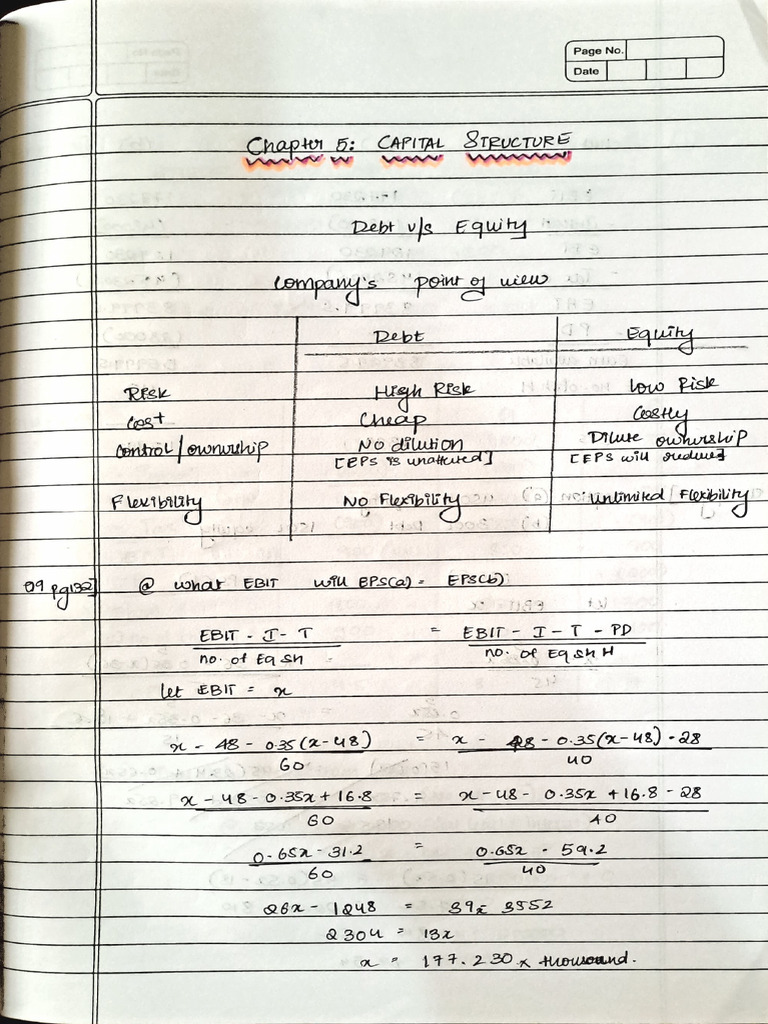 Page No.
Date
Chapter 5: CAPITAL STRUCTURE
Debt v/s Equity
Company's point of view
Debt Equity
Risk High Risk Low Risk
Cost Cheap Costly
Control/ownership No dilution Dilute ownership
[EPS is unaffected] [EPS will reduce]
Flexibility No Flexibility Unlimited Flexibility
09 pg132] @ what EBIT will EPS(a) = EPS(b)
EBIT - I - T = EBIT - I - T - PD
no. of Eq sh no. of Eq sh H
let EBIT = x
x - 48 - 0.35(x-48) = x - 48 - 0.35(x-48) - 28
60 40
x - 48 - 0.35x + 16.8 = x - 48 - 0.35x + 16.8 - 28
60 40
0.65x - 31.2 = 0.65x - 59.2
60 40
26x - 1248 = 39x - 3552
2304 = 13x
x = 177.230 x thousand.